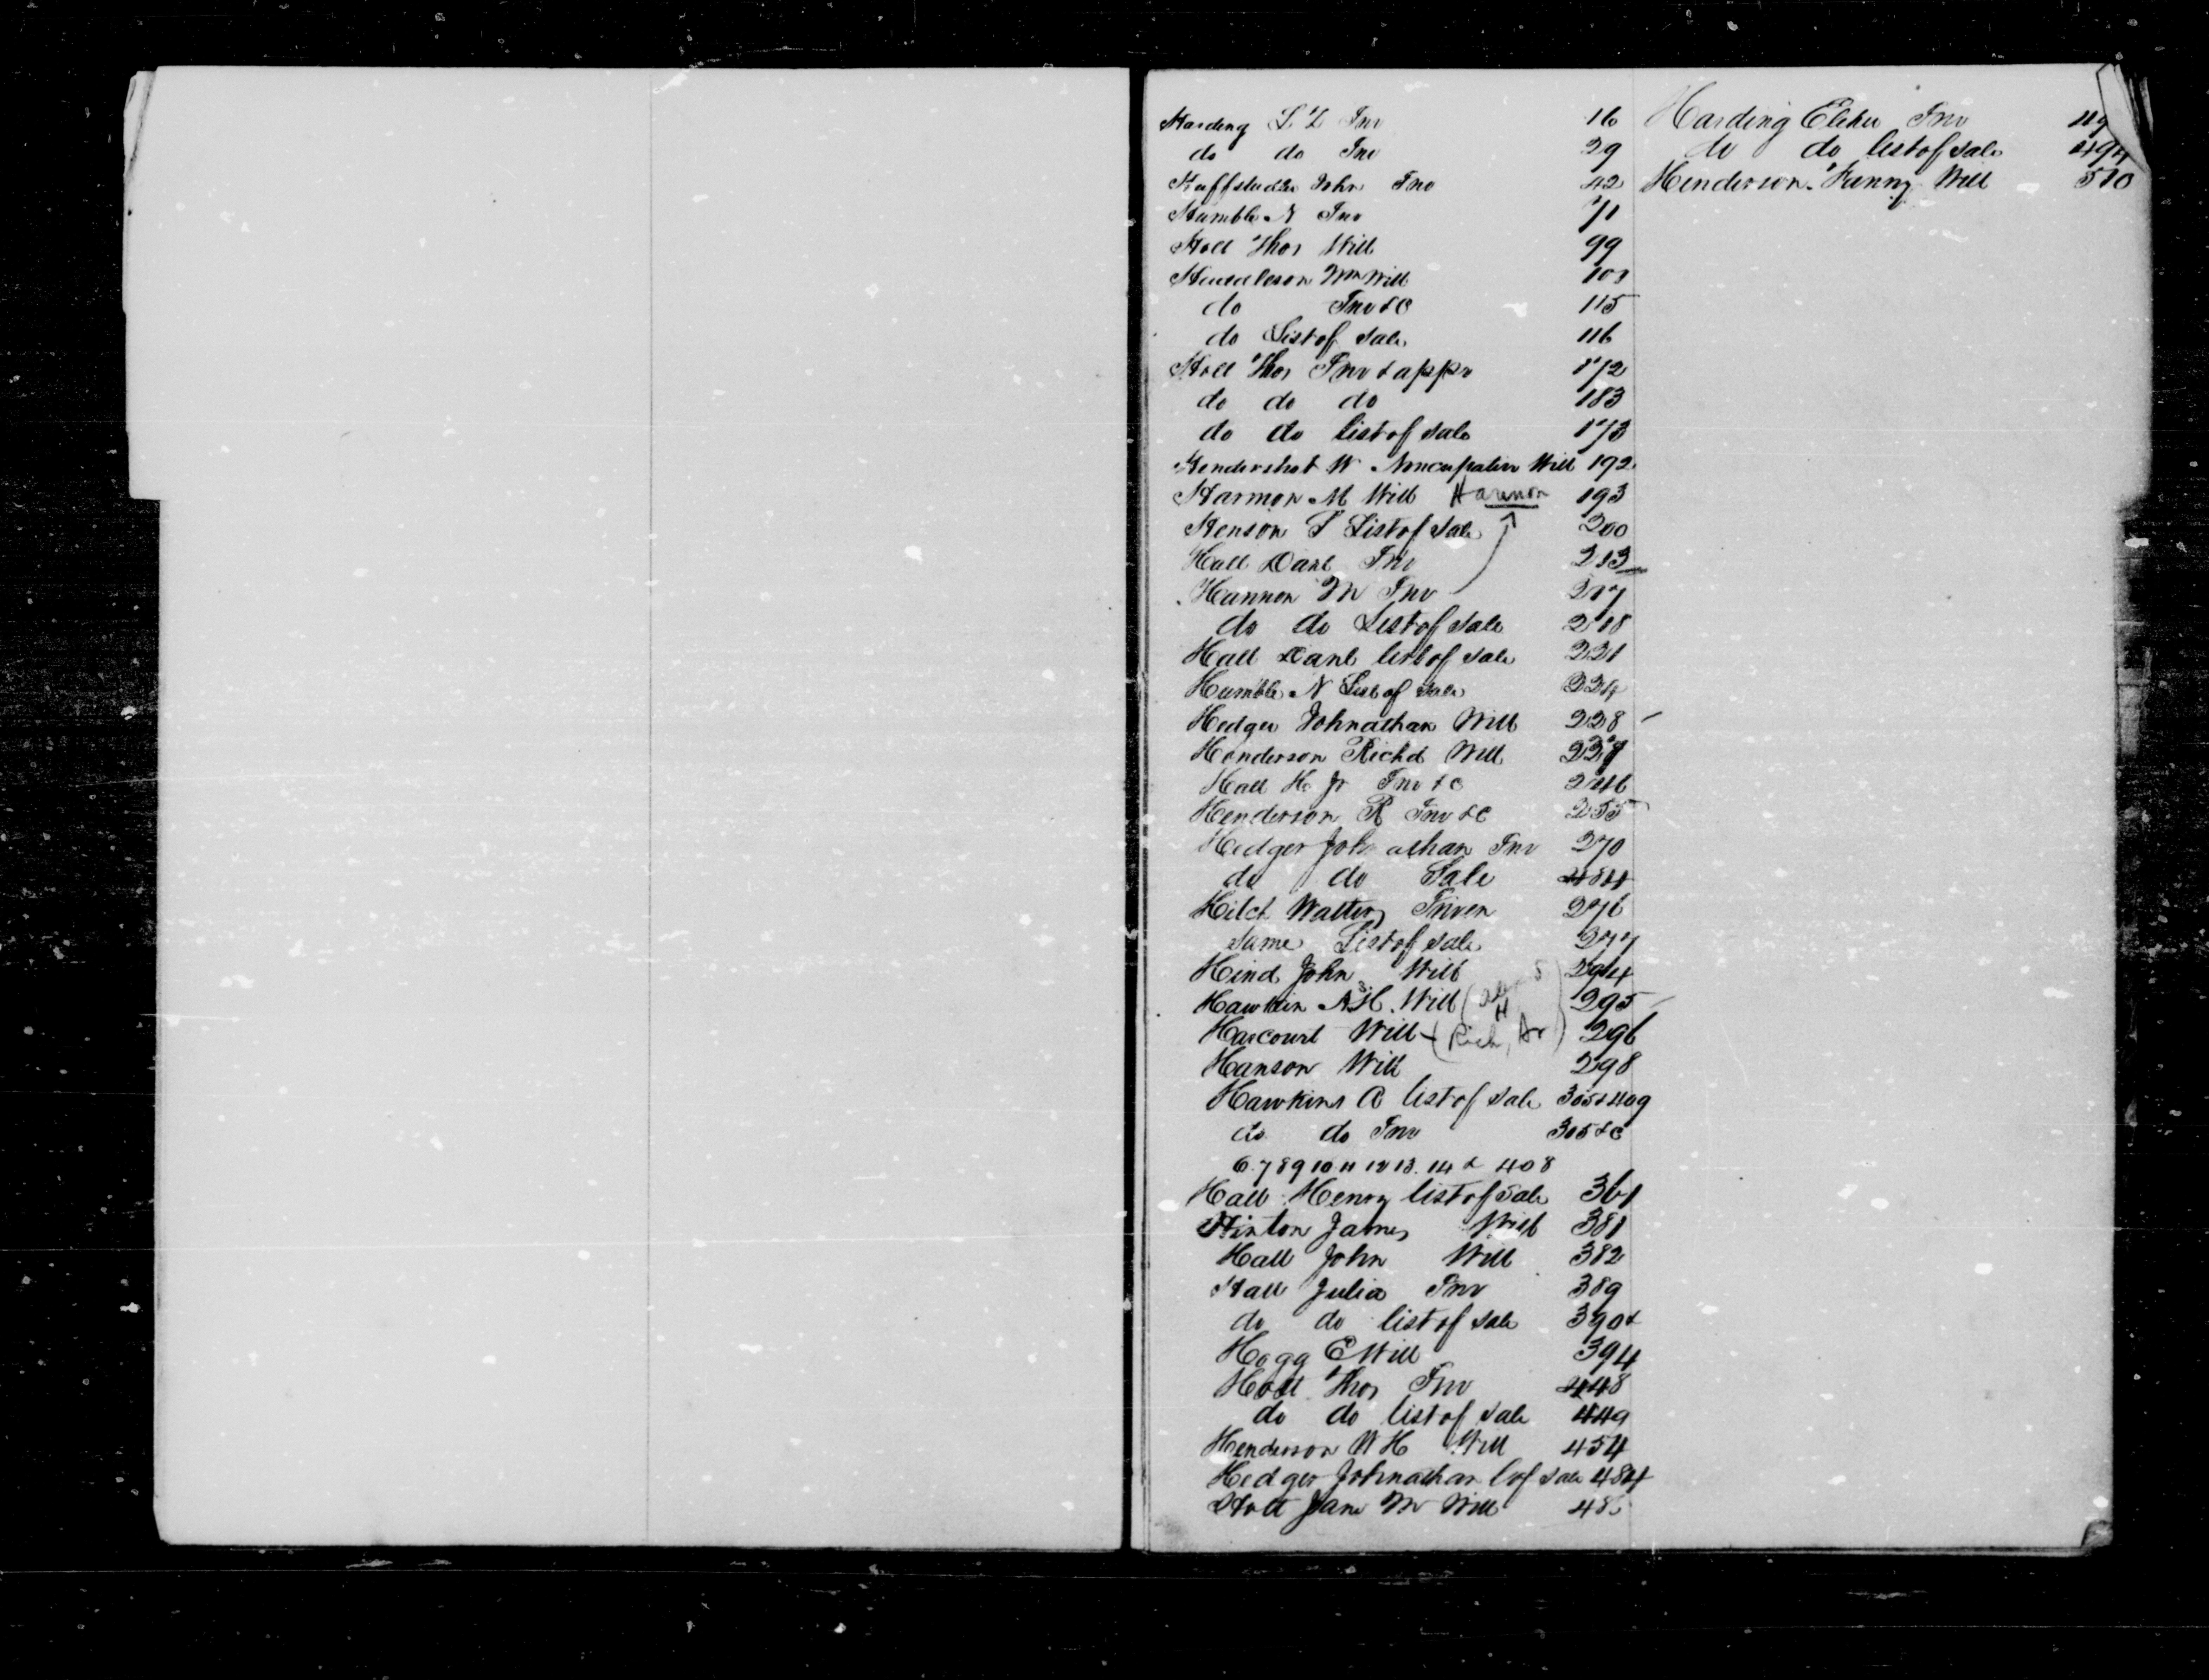 Harding S L Inv 16
do do Inv 29
Huffstudler John Inv 42
Humble N Inv 71
Holl Thos Will 99
Hudleson Wm Will 101
do Inv &C 115
do List of Sale 116
Holl Thos Inv & appr 172
do do do 183
do do list of sale 173
Hendershot W Noncupative Will 192
Harmon M Will Harmon 193
Henson S List of Sale 200
Hall Danl Inv 213
Hannon M Inv 217
do do List of Sale 218
Hall Danl list of sale 221
Humble N List of sale 224
Hedger Johnathan Will 228
Henderson Richd Will
Hall H Jr Inv & c 246
Henderson R Inv &C 255
Hedger Joh athan Inv 270
do do Sale 484
Hilct Walter Inven 276
Same List of sale 277
Hind John Will 294
Hawkin N H Will 295
Harcourt Will (Rich, Ar) 296
Hanson Will 298
Hawkins A list of sale 305 & 409
do do Inv 305 & C
6. 7 8 9 10 11 12 13. 14 & 408
Hall Henry list of sale 361
Hinton James Will 381
Hall John Will 382
Hall Julia Inv 389
do do list of sale 390 &
Hogg E Will 394
Holl Thos Inv 448
do do list of sale 449
Henderson W H Will 454
Hedger Johnathan l of sale 484
Holt Jane M Will
Harding Elihu Inv 49
do do list of sale 494
Henderson Fanny Will 510